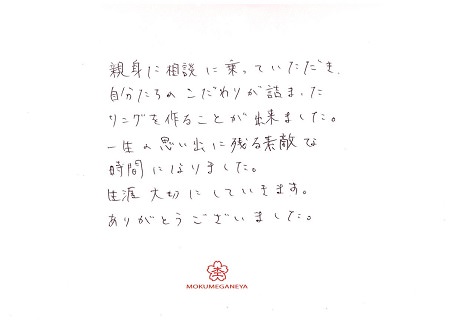 親身に相談に乗っていただき、
自分たちのこだわりが詰まった
リングを作ることが出来ました。
一生の思い出に残る素敵な
時間になりました。
生涯大切にしていきます。
ありがとうございました。
MOKUMEGANEYA